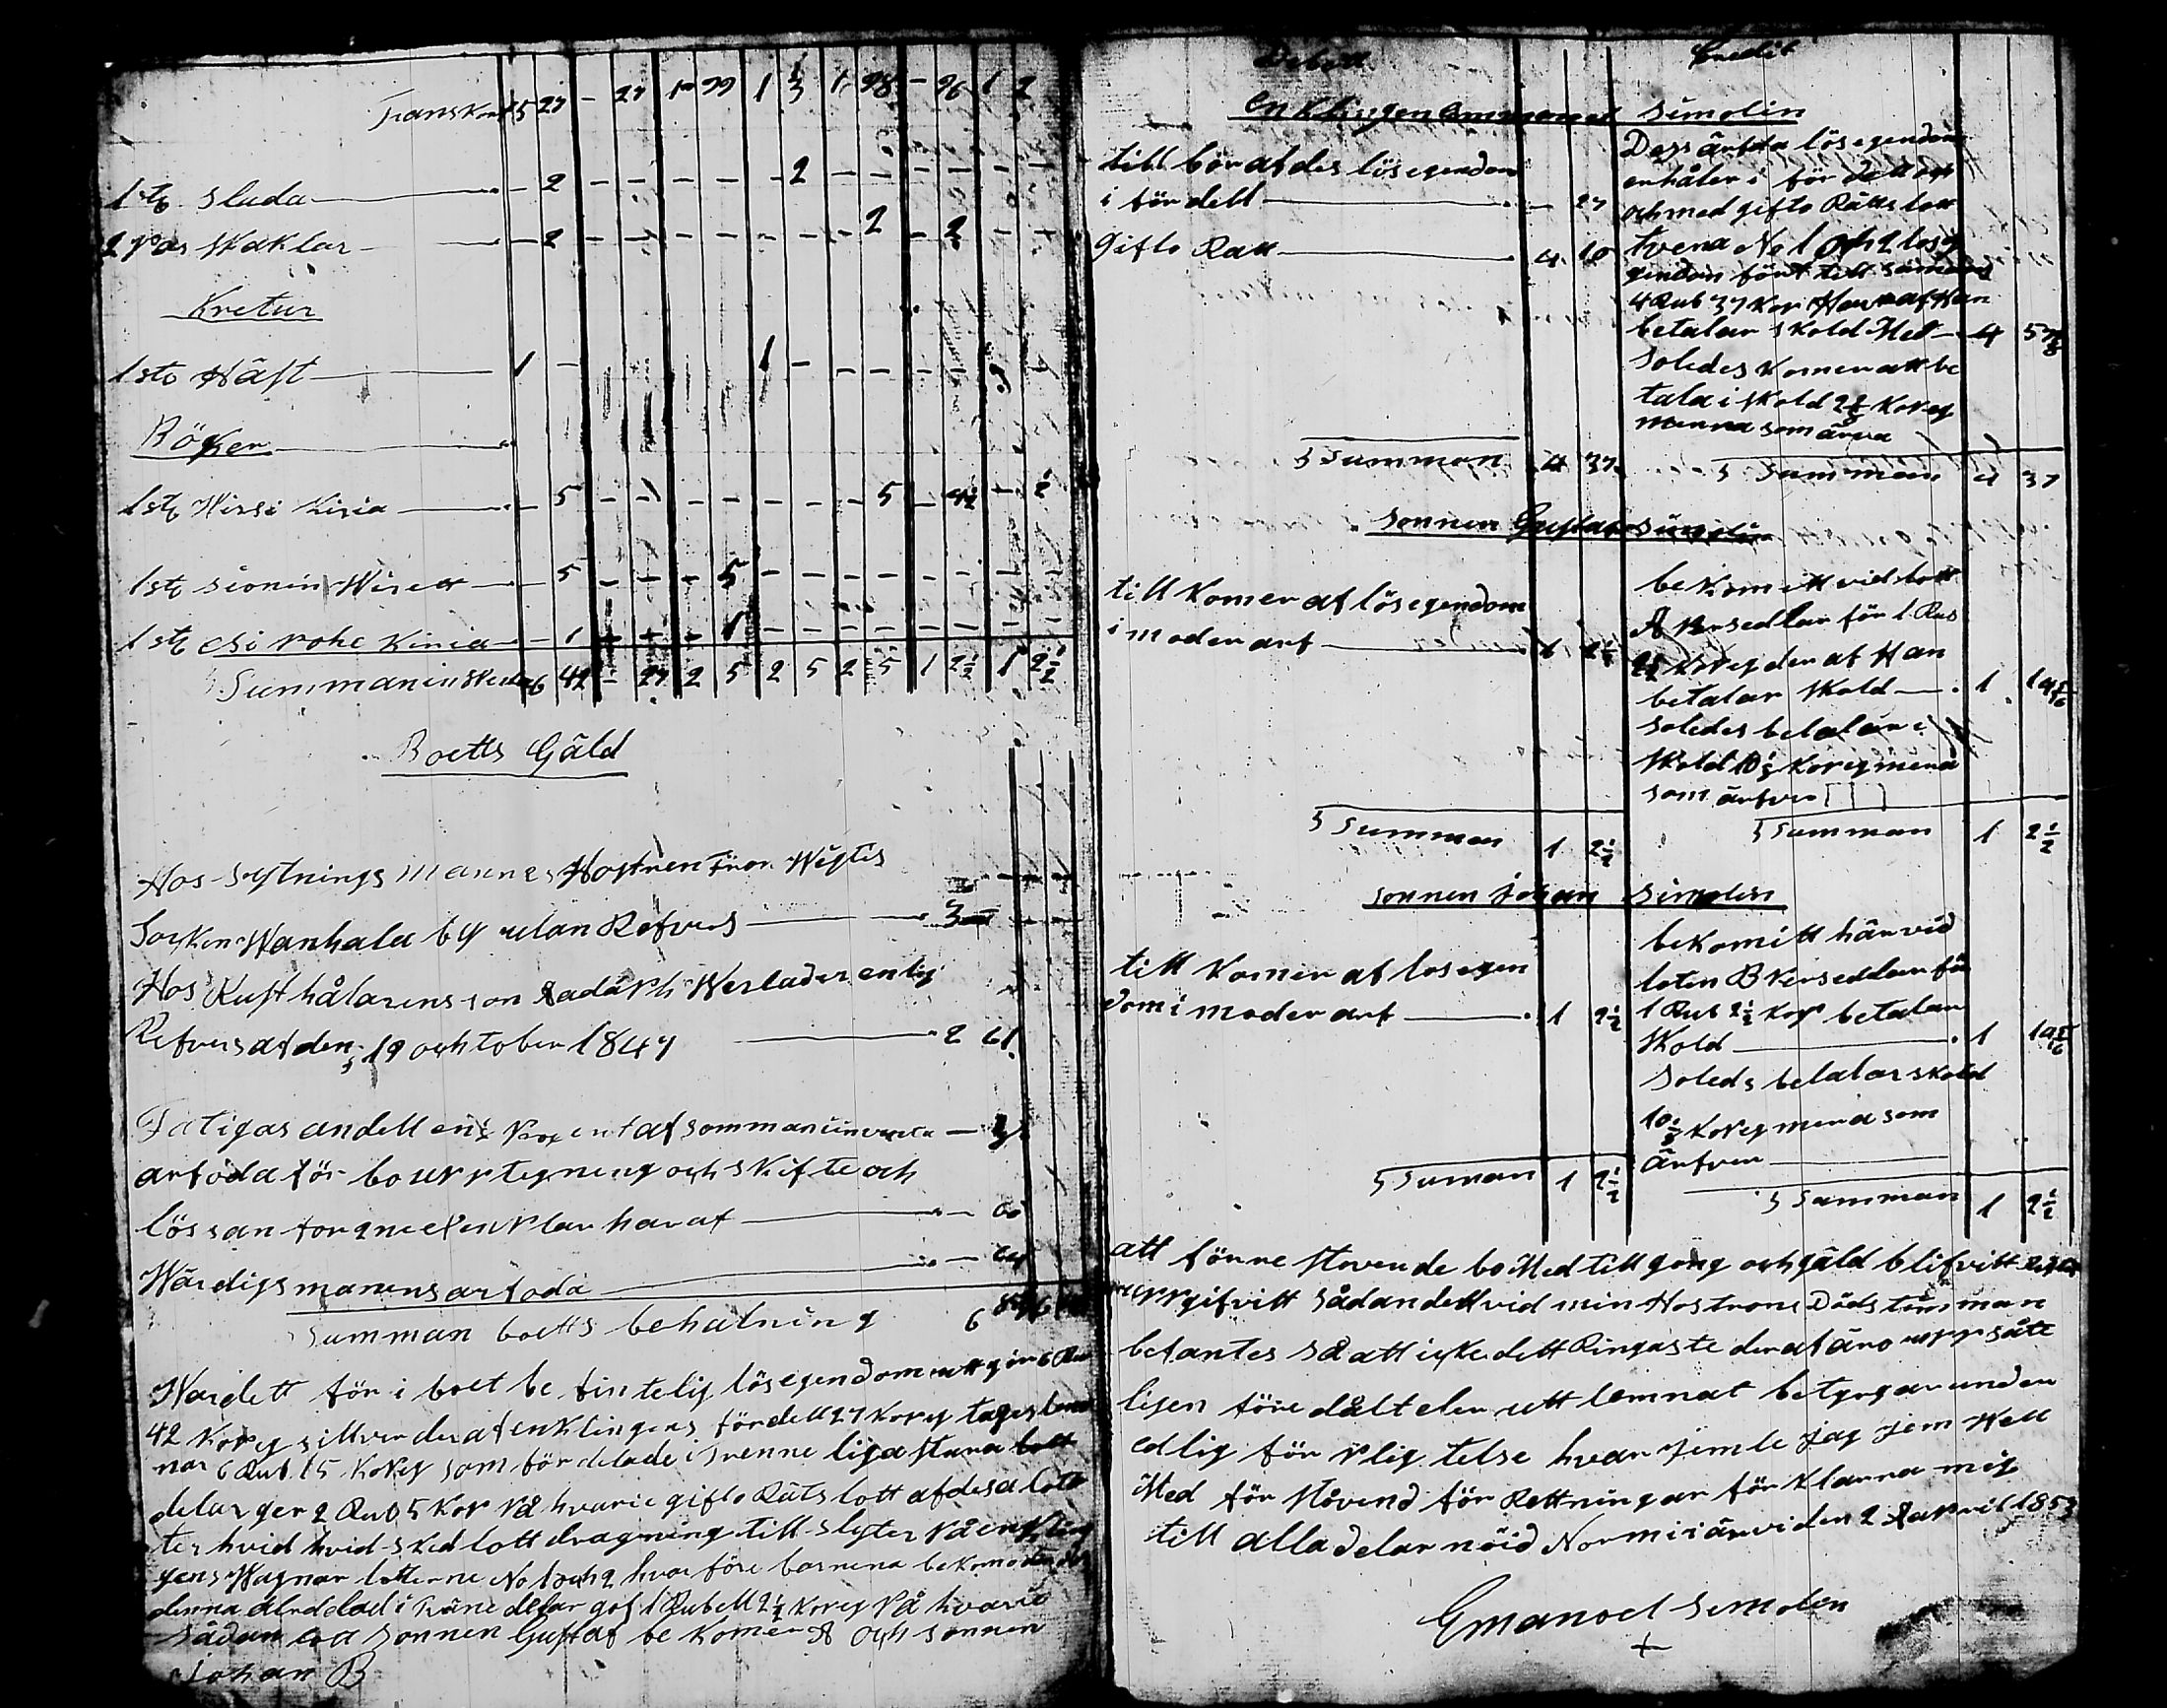 Transkort 5 27 - 27 1 99 1 3 1 98 - 96 1 2
1 st slada - 2 - - - - - 2 - - - - - -
2 par skaklar - 2 - - - - - - - 2 - 2 - -
Kretur
1 st Häst 1 - 1 - - - - -
Böker
1 st Wirsi Kiria - 5 - - - - - - - 5 - 4½ - ½
1 st sionin Wirett - 5 - - - 5 - - - - - - - -
1 st esi rohe Kiria - 1 - - - 1 - - - - - - - -
Summan 6 42 - 27 2 5 2 5 2 5 1 2½ 1 2½
Boetts Gäld
Hos sytnings mannes Hostren från Wigtis
Sorken Wanhala by utan Refvers 3
Hos Rusthålarens son Wesladers enlig
Refvers af den 19 ochtober 1847 2 61
Fatigas andell en ½ af somman
arfoda för bo upptegning och skifte och
lössan for
Wärdigsmanens arfoda
Summan boetts behalning 6
Wardett för i boet be fintelig lösegendom utt gör 6 Rub
42 Kopeg sillver deraf enklingens fördell 27 Kopeg tages
nar 6 Rub 15 Kopeg som för delade i trenne liga stora lott
delar ger 2 Rub 5 Kop på hvarie gifto Räts lott af desa loto
ter hvid hvid sked lott dragning till slyter på enkling
gens Wagnar lotterne No 1 och 2 hvar före barnena bekomo
denna del delad i delar gof 1 Rubell 2½ Kopeg På hvarie
sådan lott sonnen Gustaf be Komer A och sonnen
Johan B
Debett Credit
Enklingen Emmanuel Simolin
till bör af des lösegendom
i för dell - 27
Gifto Rätt 4 10
Dess ärfda lösegendom
erhåler i för dell
och med gifto Rätts lott
tvena No 1 och 2 löse
gendom fört till samans
4 Rub 37 Kop Haraf Han
betalar skold Med 4
soledes Komer att be
tala i skold 2 Kopeg
menna som ärfva
Summan 4 37 Summan 4 37
Sonnen Gustaf Simolin
till Komer af lösegendom
i moder arf 1 2½
bekomett vid lott
A Persedlar för 1 Rub
2½ Kopeg der af Han
betalar skold 1
soledes betalar i
skold 10 Kopeg mena
som ärfver
Summan 1 2½ Summan 1 2½
Sonnen Johan Simolin
till Komer af losegen
dom i moder arf 1 2½
bekomitt här vid
loten B Persedlar för
1 Rub 2½ Kop betalar
Skold 1
Soleds betalar skold
10 Kopeg mena som
ärfver
Suman 1 2½ Samman 1 2½
att förre stovende bo Med till gong och gäld blifvitt
uppgifvitt sådan dett vid min Hostrons Dödstimman
befantes så att icke dett Ringaste deraf äro uppsåte
ligen före dålt eler utt lemnat betygar under
edlig för plig telse hvar jemte jag jem Well
Med för stövend för Rettningar för Klarra mig
till alla delar nöid Normisärvi den 2 Aapril 1853
Emanoel Simolin
+